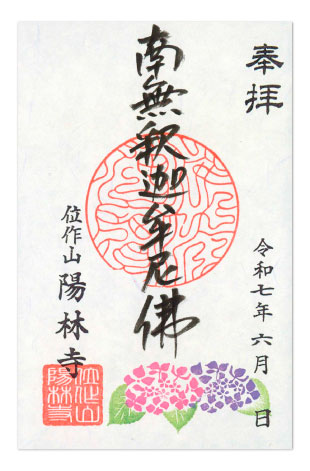 奉拝
令和七年六月　日
南無釈迦牟尼佛
位作山 陽林寺
位作山
陽林寺